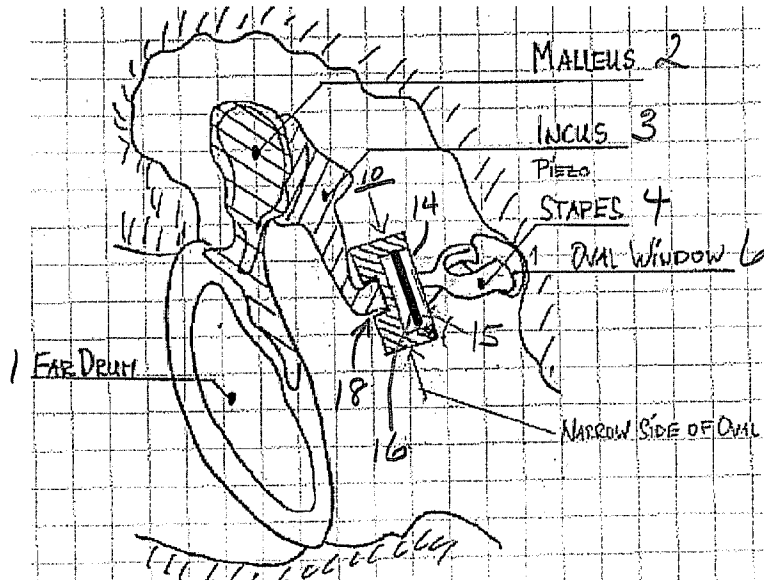 MALLEUS 2
INCUS 3
PIEZO
10
14
STAPES 4
OVAL WINDOW 6
15
1 EAR DRUM
18
16
NARROW SIDE OF OVAL